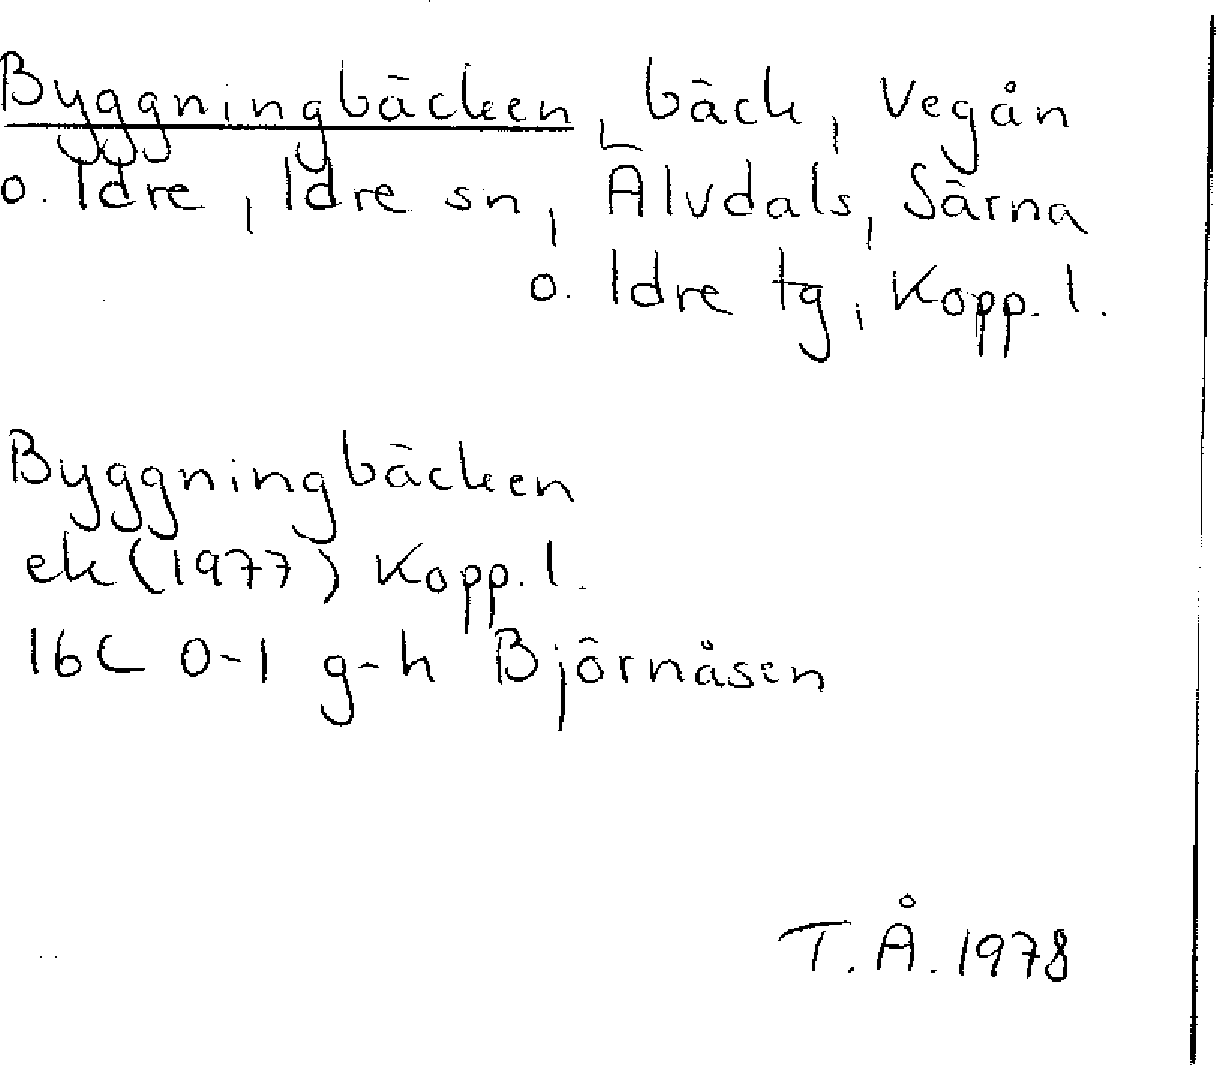 Byggningbäcken, bäck, Vegån
o. Idre, Idre sn, Älvdals, Särna
o. Idre tg, Kopp. l.
Byggningbäcken
ek (1977) Kopp. l.
16C 0-1 g-h Björnåsen
T.Å. 1978